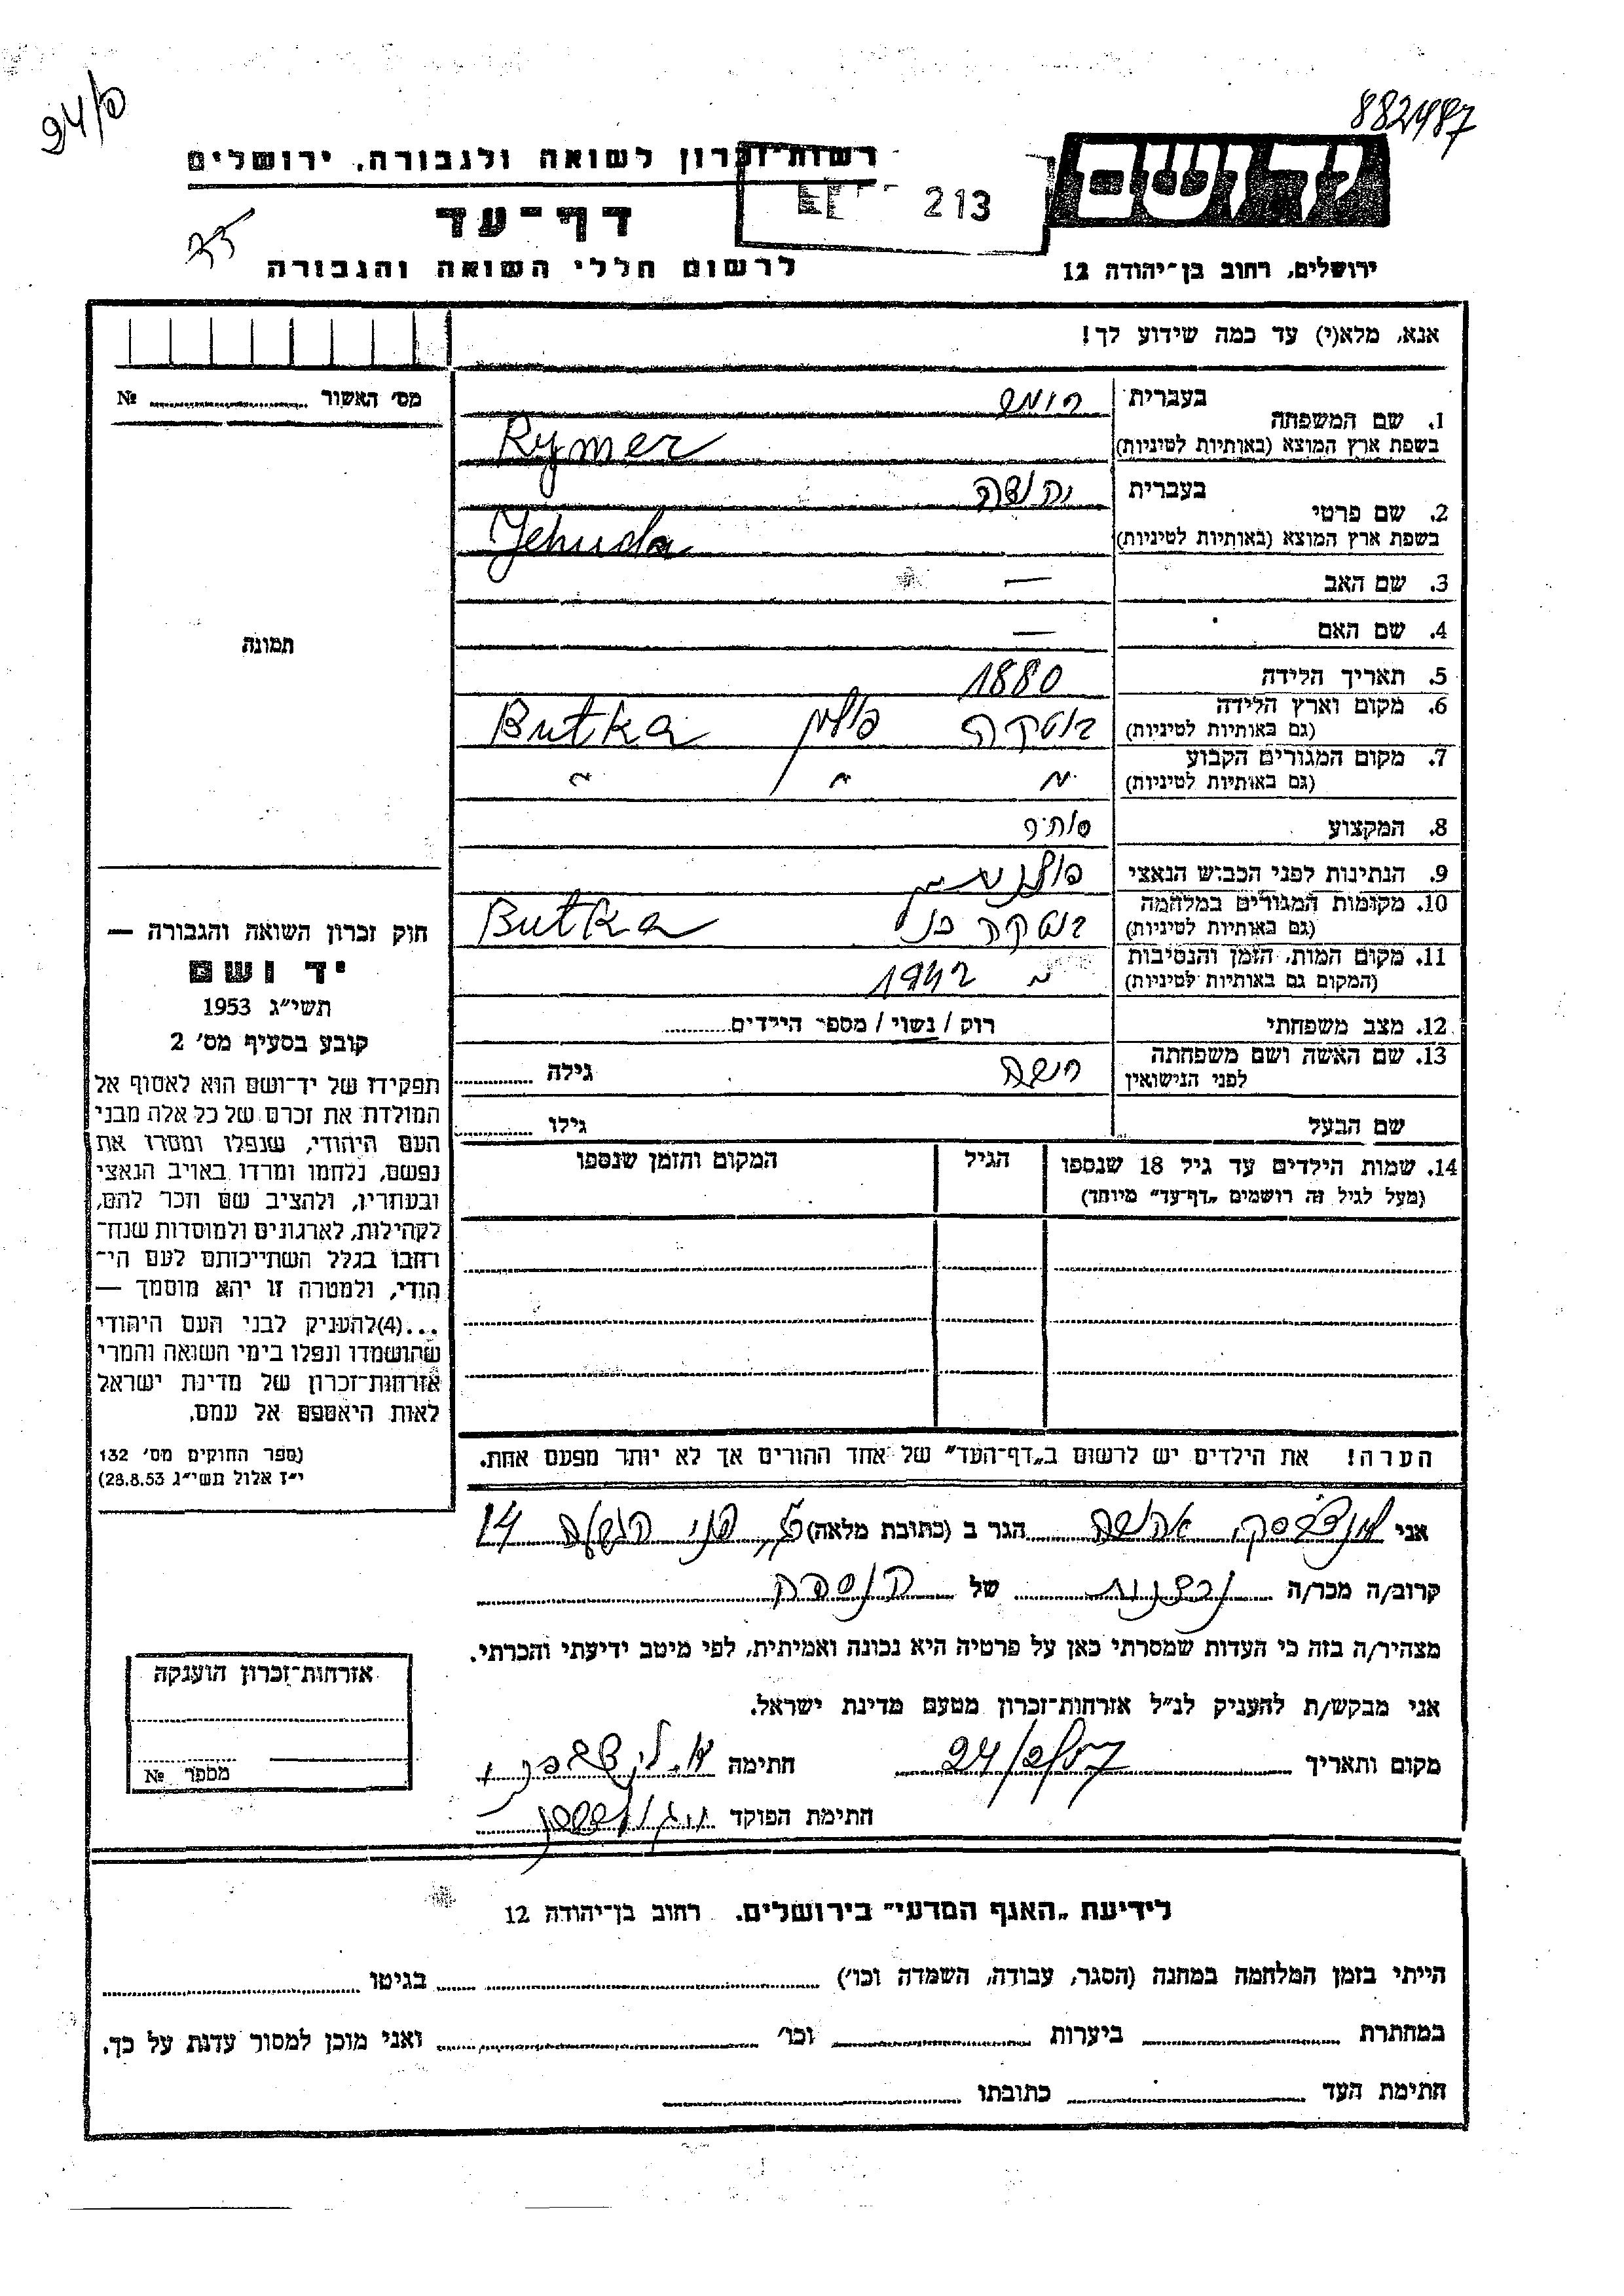 94/ס
882487
רשות־זכרון לשואה ולגבורה, ירושלים
יד ושם
213
דף־עד
לרשום חללי השואה והגבורה
ירושלים, רחוב בן־יהודה 12
אנא, מלא(י) עד כמה שידוע לך!
מס' האשור №
1. שם המשפחה
בעברית
בשפת ארץ המוצא (באותיות לטיניות) Rymer
2. שם פרטי
בעברית יהודה
בשפת ארץ המוצא (באותיות לטיניות) Jehuda
3. שם האב —
4. שם האם —
תמונה
5. תאריך הלידה 1880
6. מקום וארץ הלידה
(גם באותיות לטיניות) בוטקה פולין Butka
7. מקום המגורים הקבוע
(גם באותיות לטיניות) " " "
8. המקצוע סוחר
9. הנתינות לפני הכבוש הנאצי פולנית
10. מקומות המגורים במלחמה
(גם באותיות לטיניות) בוטקה כנ"ל Butka
11. מקום המות, הזמן והנסיבות
(המקום גם באותיות לטיניות) " 1942
12. מצב משפחתי רוק / נשוי / מספר הילדים
13. שם האשה ושם משפחתה
לפני הנישואין גילה
שם הבעל גילו
14. שמות הילדים עד גיל 18 שנספו
(מעל לגיל זה רושמים „דף־עד" מיוחד)
הגיל
המקום והזמן שנספו
חוק זכרון השואה והגבורה —
יד ושם
תשי"ג 1953
קובע בסעיף מס' 2
תפקידו של יד־ושם הוא לאסוף אל
המולדת את זכרם של כל אלה מבני
העם היהודי, שנפלו ומסרו את
נפשם, נלחמו ומרדו באויב הנאצי
ובעוזריו, ולהציב שם וזכר להם,
לקהילות, לארגונים ולמוסדות שנח־
רבו בגלל השתייכותם לעם הי־
הודי, ולמטרה זו יהא מוסמך —
...(4)להעניק לבני העם היהודי
שהושמדו ונפלו בימי השואה והמרי
אזרחות־זכרון של מדינת ישראל
לאות היאספם אל עמם.
(ספר החוקים מס' 132
י"ז אלול תשי"ג 28.8.53)
הערה! את הילדים יש לרשום ב„דף־העד" של אחד ההורים אך לא יותר מפעם אחת.
אני הגר ב (כתובת מלאה) 14
קרוב/ה מכר/ה של
מצהיר/ה בזה כי העדות שמסרתי כאן על פרטיה היא נכונה ואמיתית, לפי מיטב ידיעתי והכרתי.
אני מבקש/ת להעניק לנ"ל אזרחות־זכרון מטעם מדינת ישראל.
מקום ותאריך חתימה
חתימת הפוקד
אזרחות־זכרון הוענקה
מספר №
לידיעת „האגף המדעי" בירושלים, רחוב בן־יהודה 12
הייתי בזמן המלחמה במחנה (הסגר, עבודה, השמדה וכו') בגיטו
במחתרת ביערות וכו' ואני מוכן למסור עדות על כך.
חתימת העד כתובתו